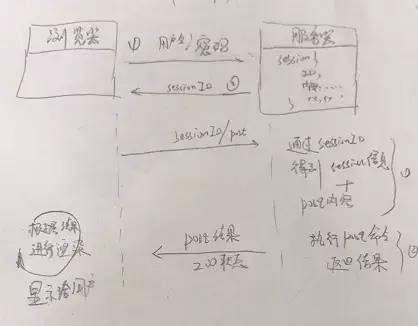 浏览器
服务器
① 用户名/密码
session {
ID,
}
sessionID ②
sessionID/post
通过 sessionID
得到 session信息
+
post内容
①
post结果
200状态
执行post命令
返回结果
②
根据结果
进行渲染
显示给用户